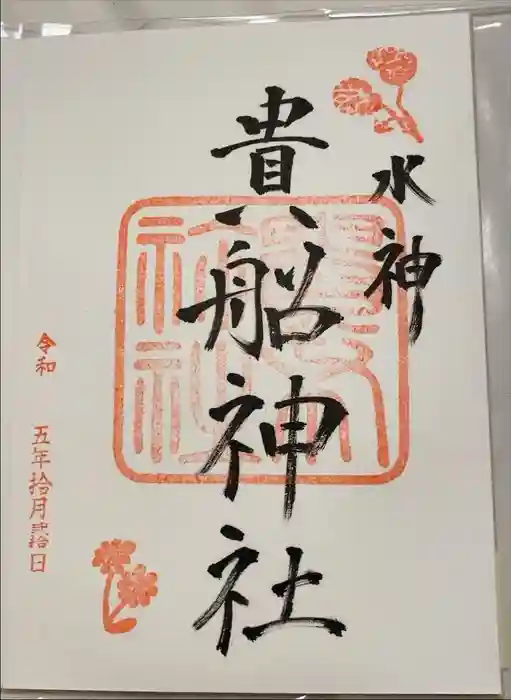 水神
貴船神社
令和 五年拾月弐拾日